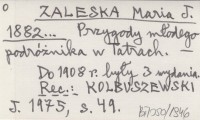 ZALESKA Maria J.
1882... Przygody młodego
podróżnika w Tatrach.
Do 1908 r. były 3 wydania.
Rec.: KOLBUSZEWSKI
J. 1975, s. 49.